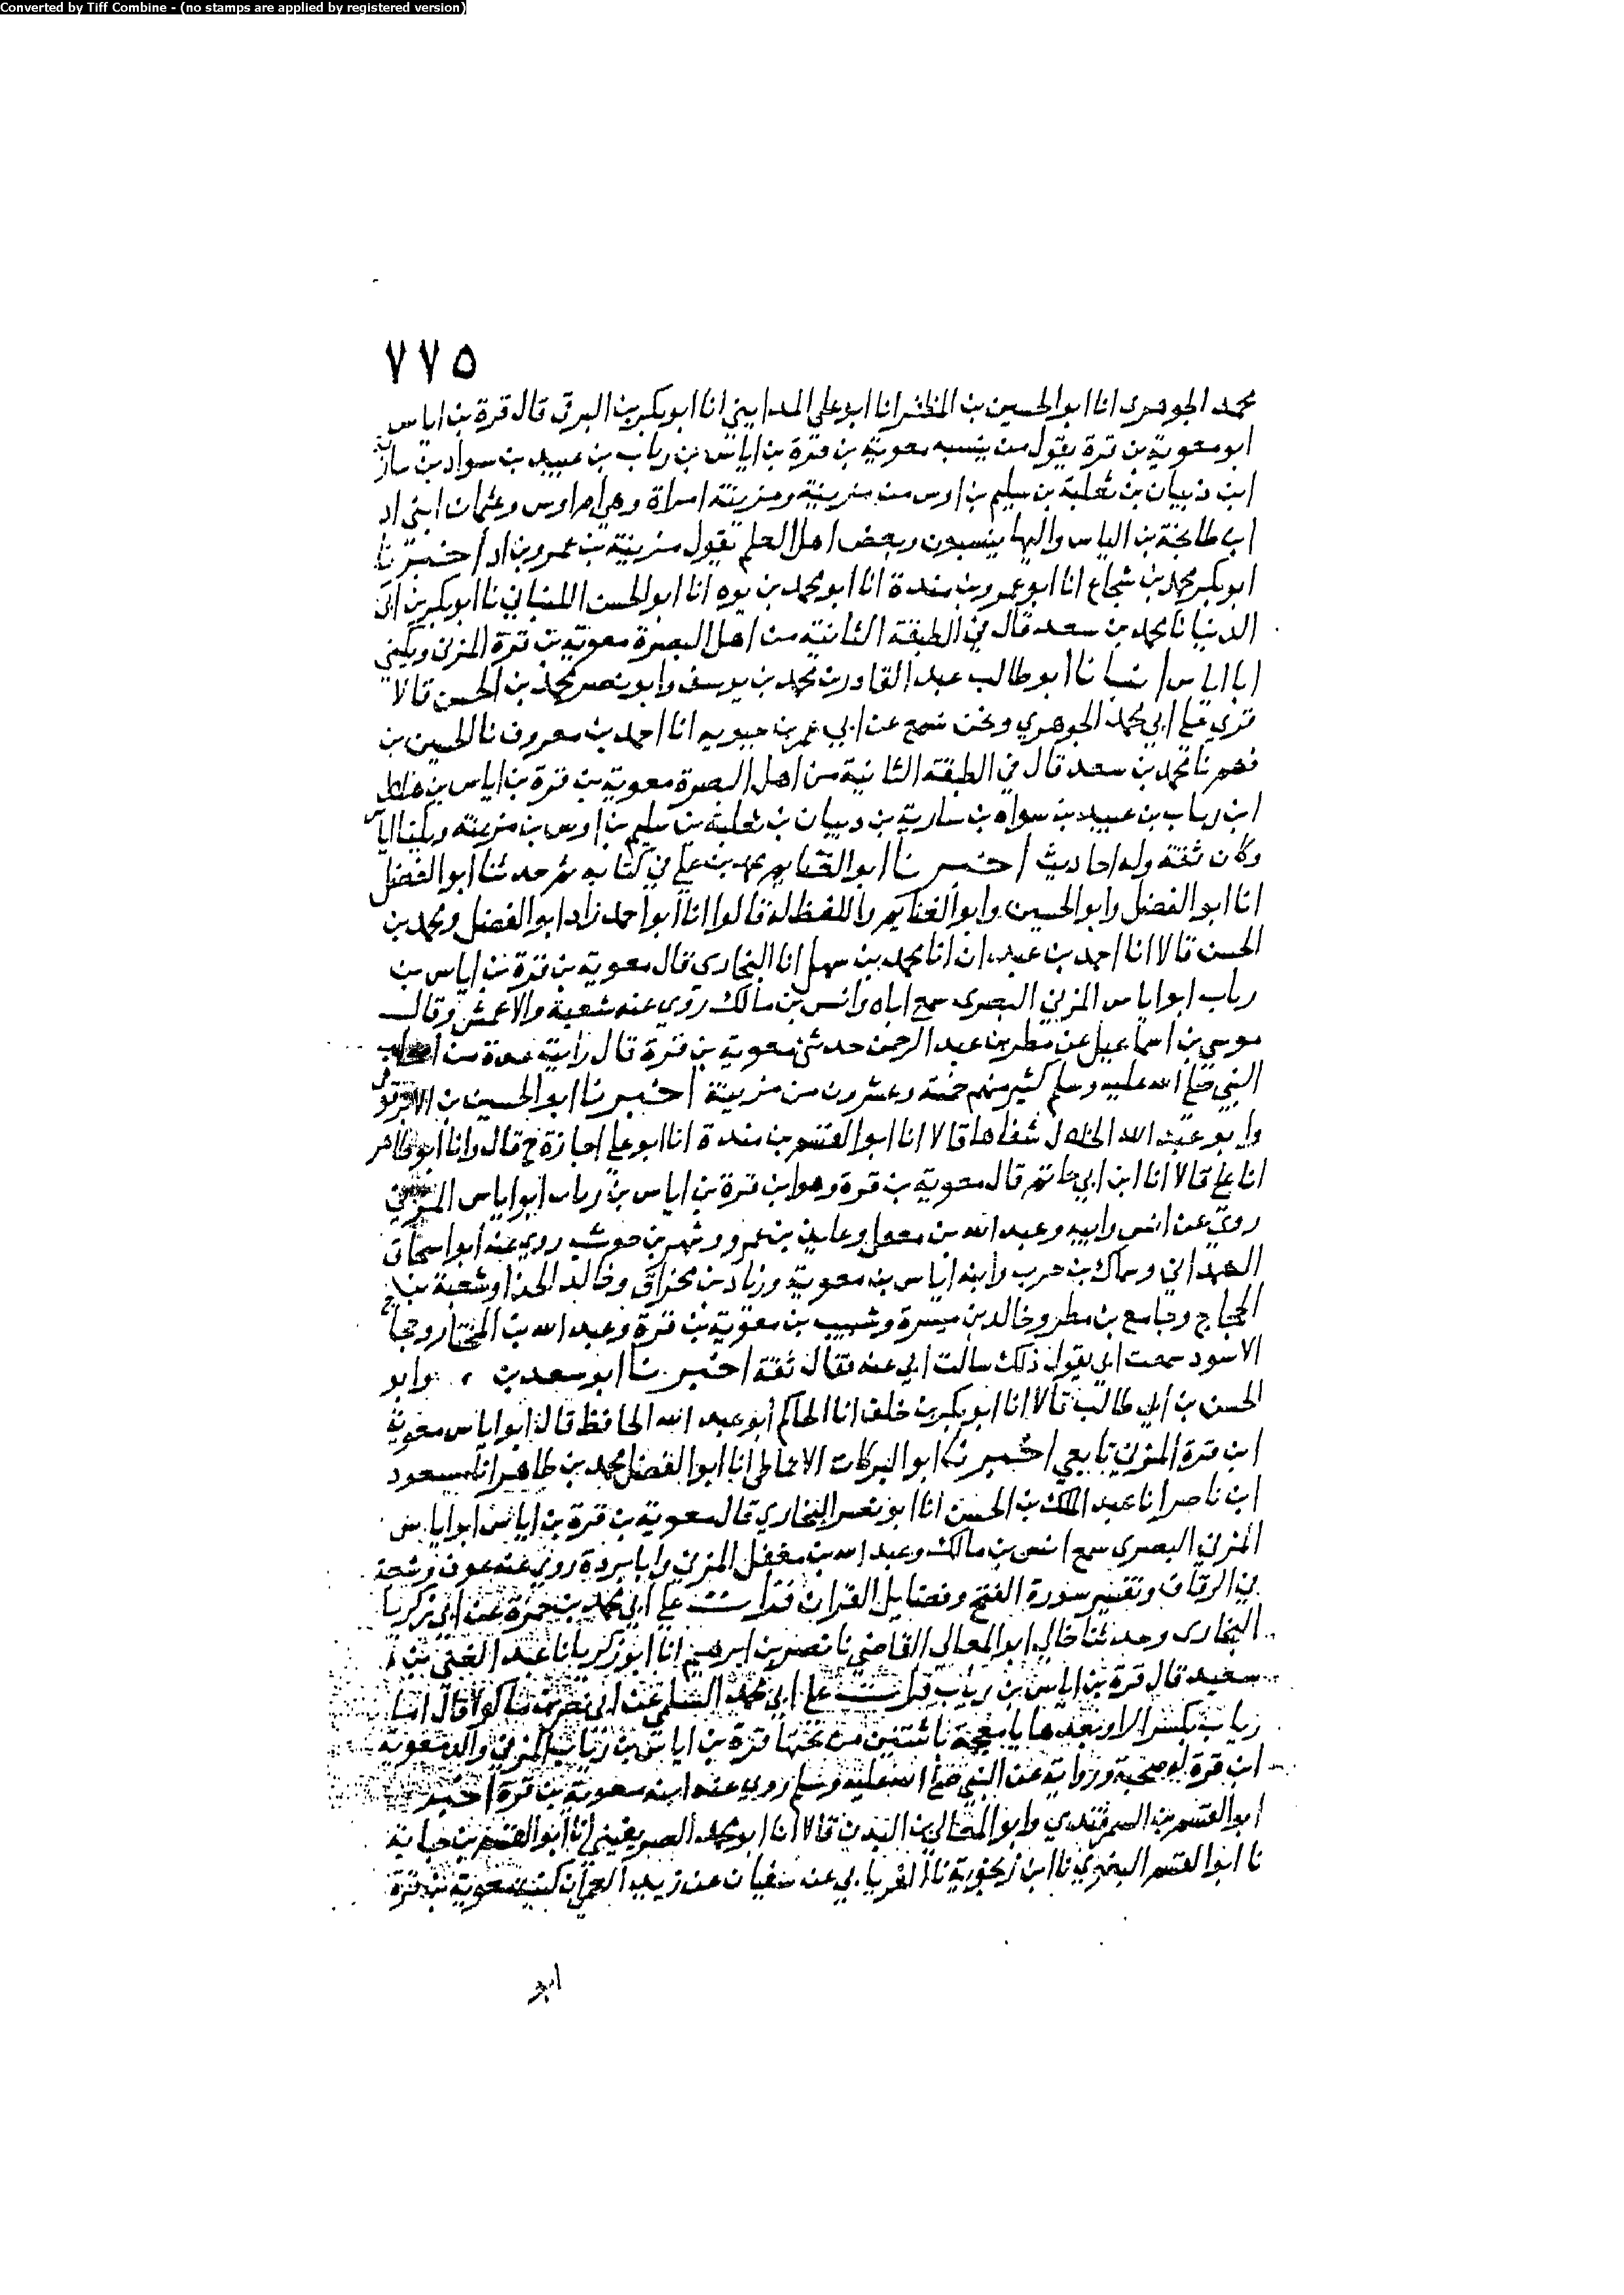 Converted by Tiff Combine - (no stamps are applied by registered version)
٧٧٥
محمد الجوهري انا ابو الحسين بن المظفر انا ابو علي المدايني انا ابو بكر بن البرقي قال قرة بن اياس
ابو معوية بن قرة يقول من ينسبه معوية بن قرة بن اياس بن رياب بن عبيد بن سواد بن سارية
ابن ذبيان بن ثعلبة بن سليم بن اوس من مزينة ومزينة امراة وهي ام اوس وعثمان ابني اد
ابن طابخة بن الياس واليها ينسبون وبعض اهل العلم يقول مزينة بن عمرو بن اد اخبرنا
ابو بكر محمد بن شجاع انا ابو عمرو بن مندة انا ابو محمد بن يوه انا ابو الحسن اللنباني نا ابو بكر بن ابي
الدنيا نا محمد بن سعد قال في الطبقة الثانية من اهل البصرة معوية بن قرة المزني ويكنى
ابا اياس انبانا ابو طالب عبد القادر بن محمد بن يوسف وابو نصر محمد بن الحسن قالا
قري علي ابي محمد الجوهري ونحن نسمع عن ابي عمر بن حيويه انا احمد بن معروف نا الحسين بن
فهم نا محمد بن سعد قال في الطبقة الثانية من اهل البصرة معوية بن قرة بن اياس بن هلال
ابن رياب بن عبيد بن سواه بن سارية بن دبيان بن ثعلبة بن سليم بن اوس بن مزينه ويكنا اباس
وكان ثقة وله احاديث اخبرنا ابو الغنايم محمد بن علي في كتابه ثم حدثنا ابو الفضل
انا ابو الفضل وابو الحسين وابو الغنايم واللفظ له قالوا انا ابو احمد زاد ابو الفضل ومحمد بن
الحسن قالا انا احمد بن عبدان انا محمد بن سهل انا البخاري قال معوية بن قرة بن اياس بن
رياب ابو اياس المزني البصرى سمع اباه وانس بن مالك روي عنه شعبة والاعمش وقال
موسي بن اسماعيل عن مطر بن عبد الرحمن حدثني معوية بن قرة قال رايت عدة من اصحاب
النبي صلي الله عليه وسلم كثير منهم خمسة وعشرون من مزينة اخبرنا ابو الحسين بن
وابو عبد الله الخلال شفاها قالا انا ابو القسم بن مندة انا ابو علي اجازة ح قال وانا ابو طاهر
انا علي قالا انا ابن ابي حاتم قال معوية بن قرة وهو ابن قرة بن اياس بن رياب ابو اياس المزني
روي عن انس وابيه وعبد الله بن معقل وعايذ بن عمرو وشهر بن حوشب روي عنه ابو اسحاق
الهمداني وسماك بن حرب وابنه اياس بن معوية وزياد بن مخراق وخالد الحذا وشعبة بن
الحجاج وجامع بن مطر وخالد بن ميسرة وشبيب بن معوية بن قرة وعبد الله بن المختار وحجاج
الاسود سمعت ابي يقول ذلك سالت ابي عنه فقال ثقة اخبرنا ابو سعد بن وابو
الحسن بن ابي طالب قالا انا ابو بكر بن خلف انا الحاكم ابو عبد الله الحافظ قال ابو اياس معوية
ابن قرة المزني تابعي اخبرنا ابو البركات الانماطي انا ابو الفضل محمد بن طاهر انا مسعود
ابن ناصر انا عبد الملك بن الحسن انا ابو نصر البخاري قال معوية بن قرة بن اياس ابو اياس
المزني البصرى سمع انس بن مالك وعبد الله بن مغفل المزني وابا بردة روي عنه عوف وشعبة
في الرقاق وتفسير سورة الفتح وفضايل القران قرات علي ابي محمد بن حمزة عن ابي زكريا
البخارى وحدثنا خالي ابو المعالي القاضي نا نصر بن ابرهيم انا ابو زكريا نا عبد الغني بن
سعيد قال قرة بن اياس بن رياب قرات علي ابي محمد السلمي عن ابي نصر بن ماكولا قال اما
رياب بكسر الرا وبعدها يا معجمة باثنتين من تحتها قرة بن اياس بن رياب المزني والد معوية
ابن قرة له صحبة ورواية عن النبي صلي الله عليه وسلم روي عنه ابنه معوية بن قرة اخبرنا
ابو القسم بن السمرقندي وابو المعالي بن البدن قالا انا ابو محمد الصريفيني انا ابو القسم بن حبابة
نا ابو القسم البغوي نا ابن زنجوية نا الفريابي عن سفيان عن زيد العمي ان كنية معوية بن قرة
ابو